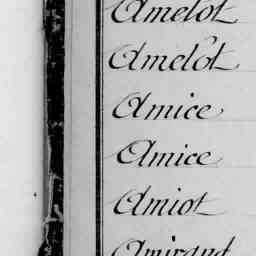 Amelot
Amelot
Amice
Amice
Amiot
Amirand